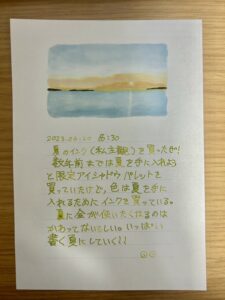 2023.06.20 8:30
夏のインク(私主観)を買ったぜ!
数年前までは夏を手に入れよう
と限定アイシャドウパレットを
買っていたけど。色は夏を手に
入れるためにインクを買っている。
夏に金が使いたくなるのは
かわってないらしい。いっぱい
書く夏にしていく!!